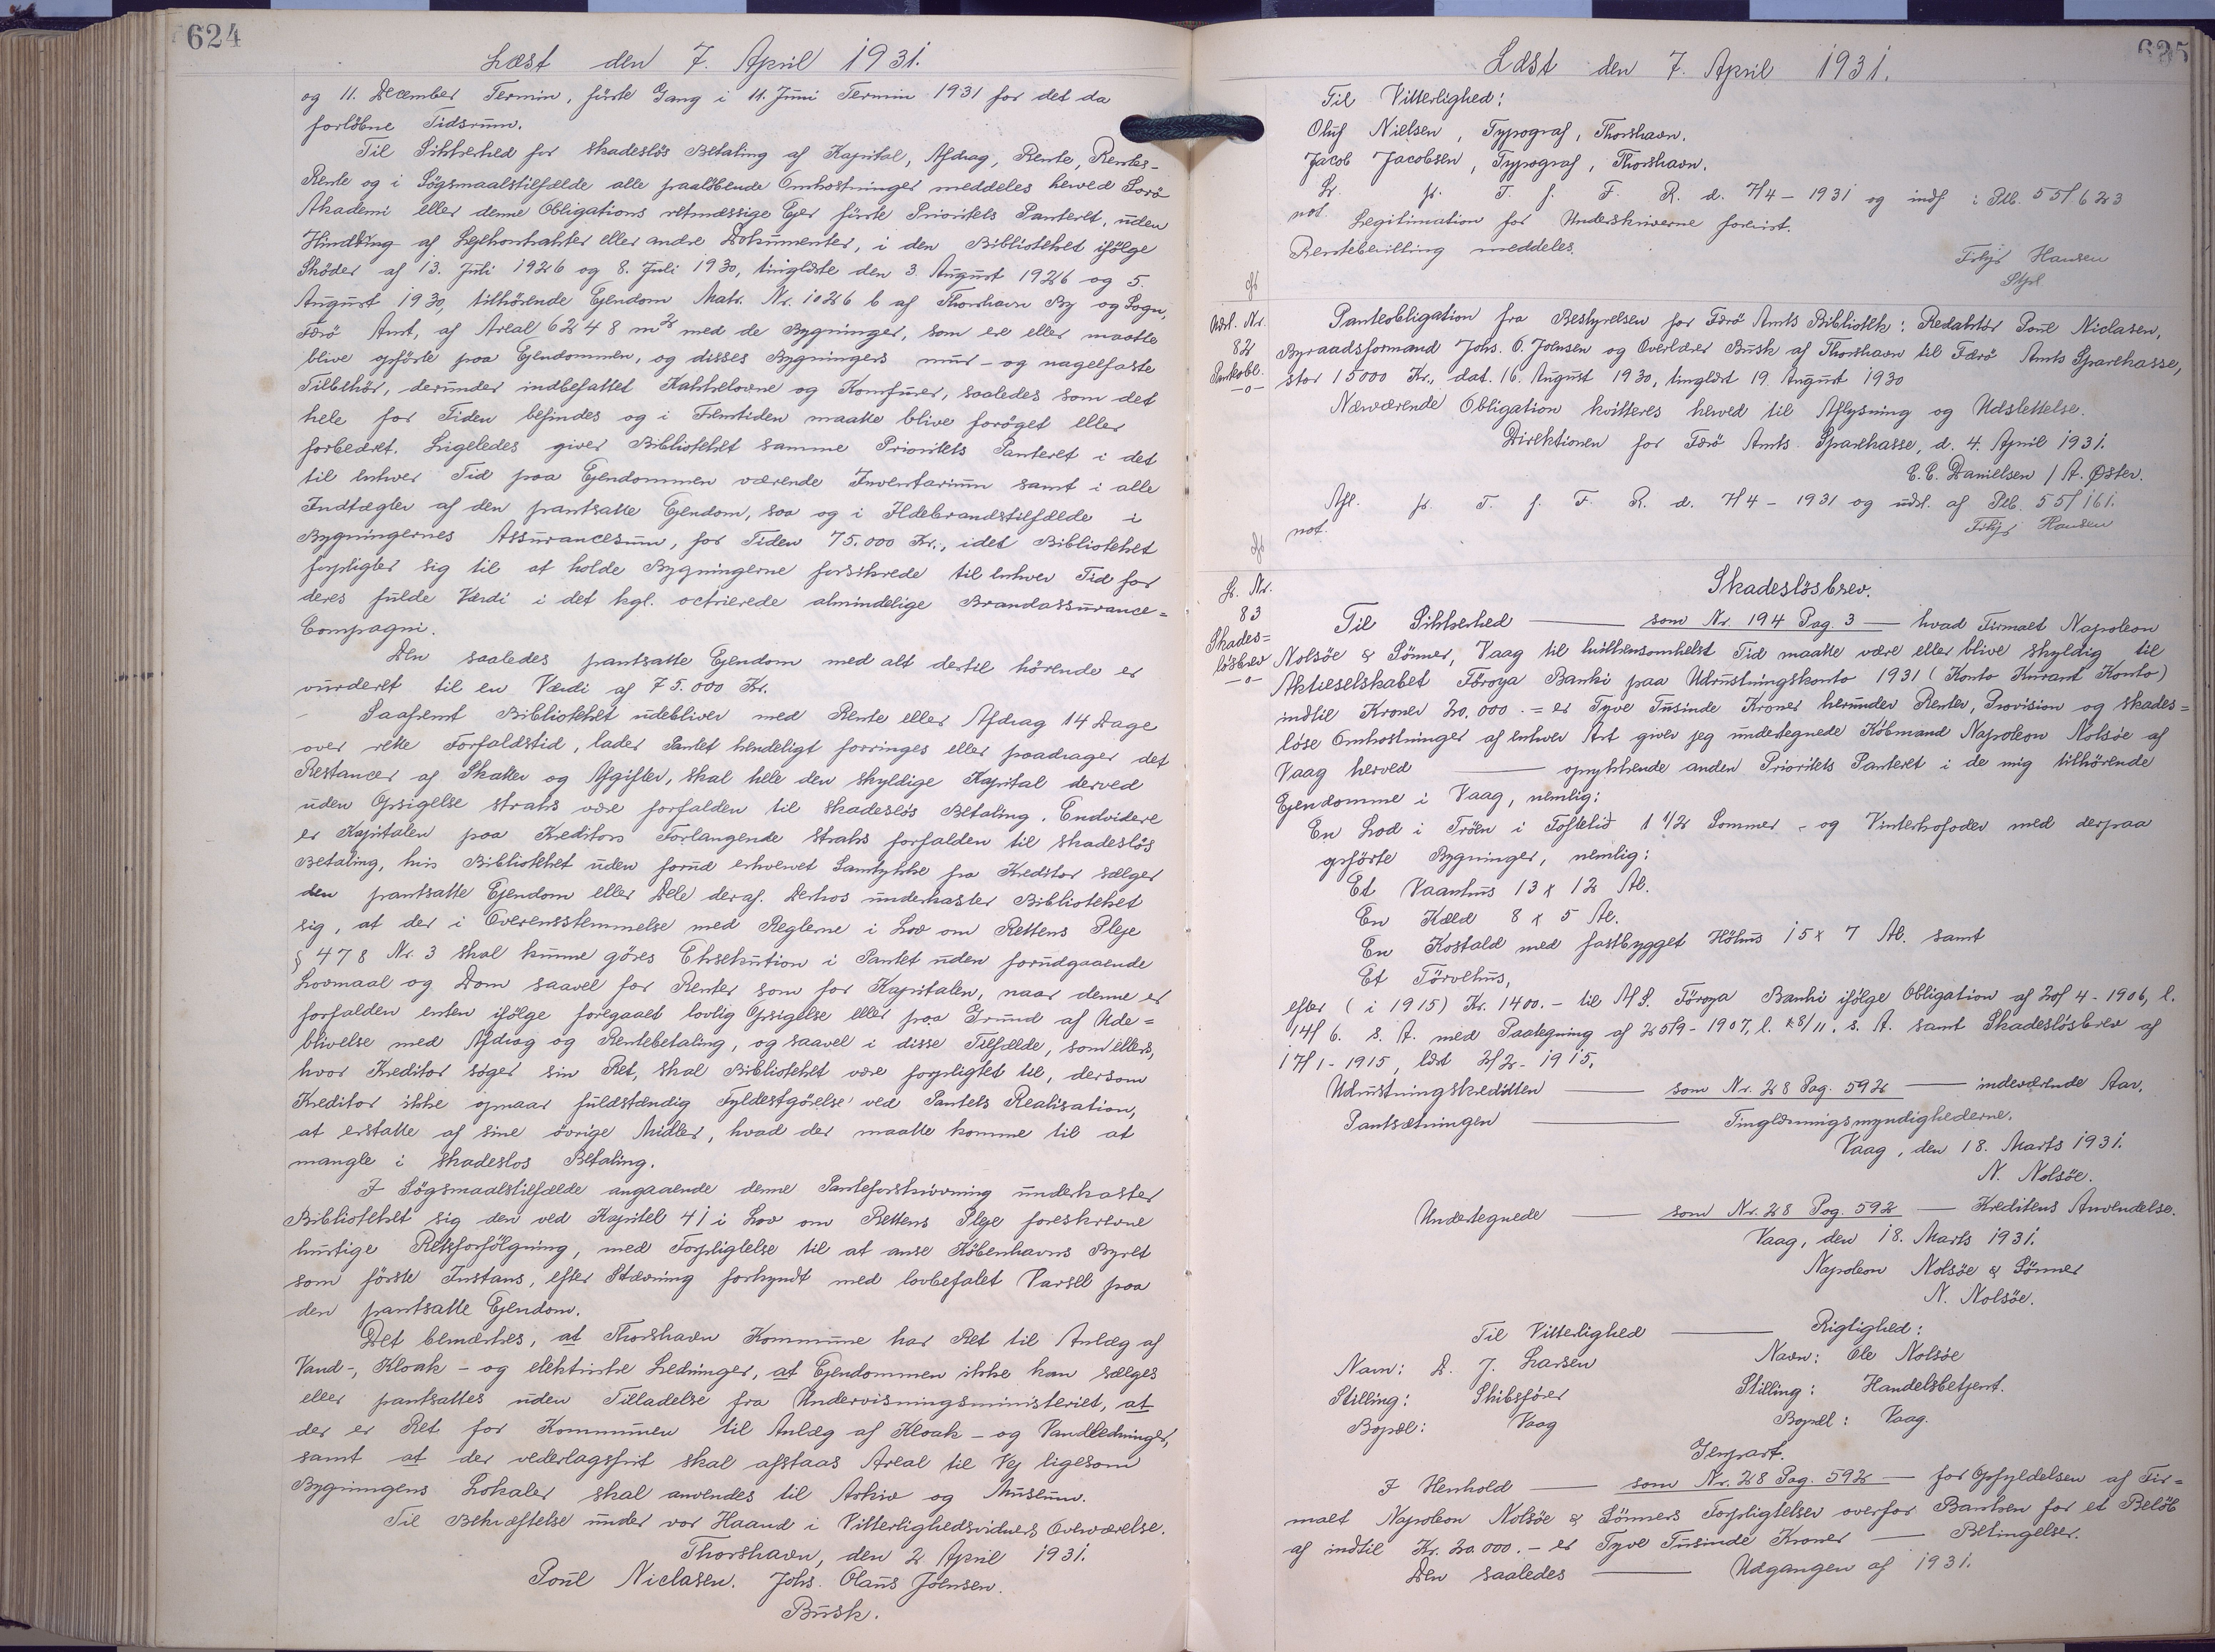 624
Læst den 7. April 1931.
og 11. December Termin, første Gang i 11. Juni Termin 1931 for det da
forløbne Tidsrum.
Til Sikkerhed for skadesløs Betaling af Kapital, Afdrag, Rente, Rentes-
Rente og i Søgsmaalstilfælde alle paaløbende Omkostninger meddeles herved Sorø
Akademi eller denne Obligations retmæssige Ejer første Prioritets Panteret, uden
Hindring af Lejekontrakter eller andre Dokumenter, i den Bibliotheket ifølge
Skøder af 13. Juli 1926 og 8. Juli 1930, tinglæste den 3. August 1926 og 5.
August 1930, tilhørende Ejendom Matr. Nr. 1026 b af Thorshavn By og Sogn,
Færø Amt, af Areal 6248 m² med de Bygninger, som ere eller maatte
blive opførte paa Ejendommen, og disses Bygningers mur- og nagelfaste
Tilbehør, derunder indbefattet Kakkelovne og Komfurer, saaledes som det
hele for Tiden befindes og i Fremtiden maatte blive forøget eller
forbedret. Ligeledes giver Bibliotheket samme Prioritets Panteret i det
til enhver Tid paa Ejendommen værende Inventarium samt i alle
Indtægter af den pantsatte Ejendom, saa og i Ildebrandstilfælde i
Bygningernes Assurancesum, for Tiden 75.000 Kr., idet Bibliotheket
forpligter sig til at holde Bygningerne forsikrede til enhver Tid for
deres fulde Værdi i det kgl. octrierede almindelige Brandassurance=
Compagni.
Den saaledes pantsatte Ejendom med alt dertil hørende er
vurderet til en Værdi af 75.000 Kr.
Saafremt Bibliotheket udebliver med Rente eller Afdrag 14 Dage
over rette Forfaldstid, lader Pantet kendeligt forringes eller paadrager det
Restancer af Skatter og Afgifter, skal hele den skyldige Kapital derved
uden Opsigelse straks være forfalden til skadesløs Betaling. Endvidere
er Kapitalen paa Kreditors Forlangende straks forfalden til skadesløs
Betaling, hvis Bibliotheket uden forud erhvervet Samtykke fra Kreditor sælger
den pantsatte Ejendom eller Dele deraf. Derhos underkaster Bibliotheket
sig, at der i Overensstemmelse med Reglerne i Lov om Rettens Pleje
§ 478 Nr. 3 skal kunne gøres Eksekution i Pantet uden forudgaaende
Lovmaal og Dom saavel for Renter som for Kapitalen, naar denne er
forfalden enten ifølge foregaaet lovlig Opsigelse eller paa Grund af Ude=
blivelse med Afdrag og Rentebetaling, og saavel i disse Tilfælde, som ellers,
hvor Kreditor søger sin Ret, skal Bibliotheket være forpligtet til, dersom
Kreditor ikke opnaar fuldstændig Fyldestgørelse ved Pantets Realisation,
at erstatte af sine øvrige Midler, hvad der maatte komme til at
mangle i skadesløs Betaling.
I Søgsmaalstilfælde angaaende denne Panteforskrivning underkaster
Bibliotheket sig den ved Kapitel 41 i Lov om Rettens Pleje foreskrevne
hurtige Retsforfølgning, med Forpligtelse til at anse Københavns Byret
som første Instans, efter Stævning forkyndt med lovbefalet Varsel paa
den pantsatte Ejendom.
Det bemærkes, at Thorshavn Kommune har Ret til Anlæg af
Vand-, Kloak- og elektriske Ledninger, at Ejendommen ikke kan sælges
eller pantsættes uden Tilladelse fra Undervisningsministeriet, at
der er Ret for Kommunen til Anlæg af Kloak- og Vandledninger,
samt at der vederlagsfrit skal afstaas Areal til Vej ligesom
Bygningens Lokaler skal anvendes til Arkiv og Museum.
Til Bekræftelse under vor Haand i Vitterlighedsvidners Overværelse.
Thorshavn, den 2 April 1931.
Poul Niclasen. Johs. Olaus Joensen.
Busk.
625
Læst den 7. April 1931.
Til Vitterlighed:
Oluf Nielsen, Typograf, Thorshavn.
Jacob Jacobsen, Typograf, Thorshavn.
Lr. fr. T. f. F. R. d. 7/4 - 1931 og indf. i Ptb. 55/623
not.
Legitimation for Underskriverne forevist.
Rentebevilling meddeles.
Hansen
Udsl. Nr.
82
Panteobl.
-o-
Panteobligation fra Bestyrelsen for Færø Amts Bibliotek: Redaktør Poul Niclasen,
Byraadsformand Johs. O. Joensen og Overlærer Busk af Thorshavn til Færø Amts Sparekasse,
stor 15000 Kr., dat. 16. August 1930, tinglæst 19. August 1930
Nærværende Obligation kvitteres herved til Aflysning og Udslettelse.
Direktionen for Færø Amts Sparekasse, d. 4. April 1931.
C. C. Danielsen / A. Øster.
Afl. fr. T. f. F. R. d. 7/4 - 1931 og udsl. af Ptb. 55/161.
not.
Hansen
Lr. Nr.
83
Skades=
løsbrev
-o-
Skadesløsbrev.
Til Sikkerhed — som Nr. 194 Pag. 3 — hvad Firmaet Napoleon
Nolsøe & Sønner, Vaag til hvilkensomhelst Tid maatte være eller blive skyldig til
Aktieselskabet Føroya Banki paa Udrustningskonto 1931 (Konto Kurant Konto)
indtil Kroner 20.000.= er Tyve Tusinde Kroner herunder Renter, Provision og skades=
løse Omkostninger af enhver Art giver jeg undertegnede Købmand Napoleon Nolsøe af
Vaag herved — oprykkende anden Prioritets Panteret i de mig tilhørende
Ejendomme i Vaag, nemlig:
En Lod i Trøen i Toftetid 1 1/2 Sommer- og Vinterhofoder med derpaa
opførte Bygninger, nemlig:
Et Vaanhus 13 x 12 Al.
En Kæld 8 x 5 Al.
En Kostald med fastbygget Höhus 15 x 7 Al. samt
Et Törvehus,
efter (i 1915) Kr. 1400.- til A/S. Föroya Banki ifølge Obligation af 20/4 - 1906, l.
14/6. s. A. med Paategning af 25/9 - 1907, l. 28/11. s. A. samt Skadesløsbrev af
17/1 - 1915, læst 2/2 - 1915.
Udrustningskreditten — som Nr. 28 Pag. 592 — indeværende Aar.
Pantsætningen — Tinglæsningsmyndighederne.
Vaag, den 18. Marts 1931.
N. Nolsøe.
Undertegnede — som Nr. 28 Pag. 592 — Kreditens Anvendelse.
Vaag, den 18. Marts 1931.
Napoleon Nolsøe & Sønner
N. Nolsøe.
Til Vitterlighed — Rigtighed:
Navn: D. J. Larsen Navn: Ole Nolsøe
Stilling: Skibsfører Stilling: Handelsbetjent.
Bopæl: Vaag Bopæl: Vaag.
Genpart.
I Henhold — som Nr. 28 Pag. 592 — for Opfyldelsen af Fir=
maet Napoleon Nolsøe & Sønners Forpligtelser overfor Banken for et Beløb
af indtil Kr. 20.000.- er Tyve Tusinde Kroner — Betingelser.
Den saaledes — Udgangen af 1931.